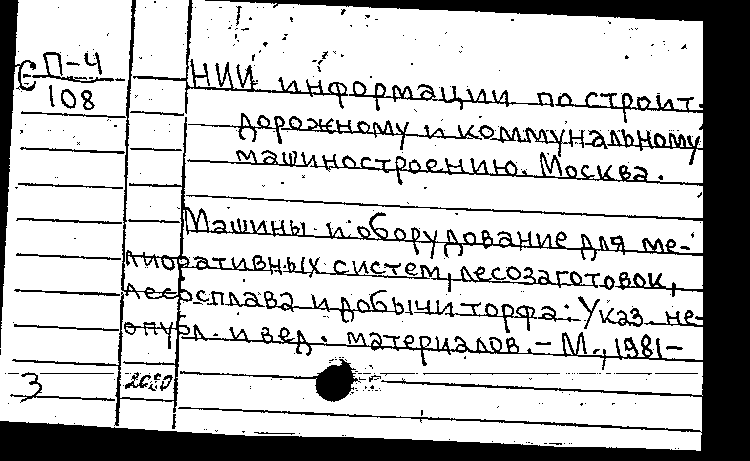 С П-4
108
НИИ информации по строит.
дорожному и коммунальному
машиностроению. Москва.
Машины и оборудование для ме-
лиоративных систем, лесозаготовок,
лесосплава и добычи торфа: Указ. не-
опубл. и вед. материалов. - М., 1981-
3 2020